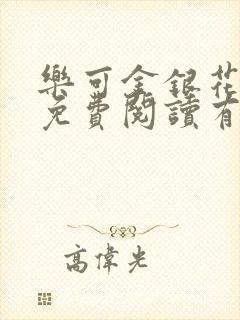 樂可金銀花
免費閱讀有
高偉光